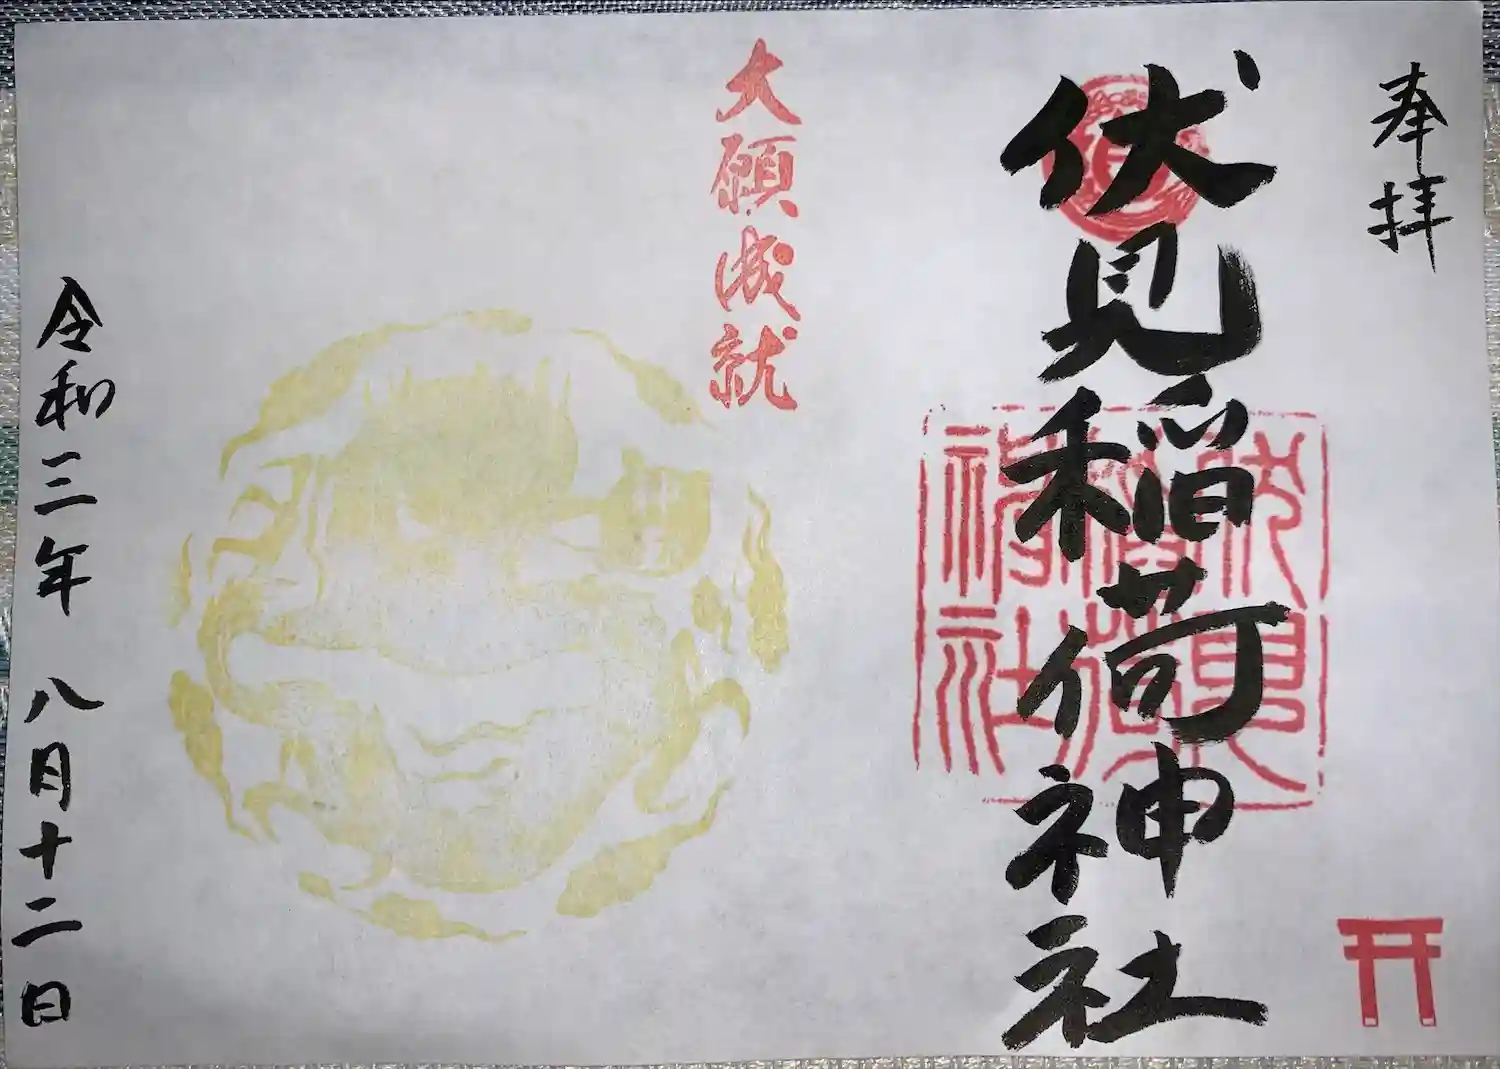 奉拝
伏見稲荷神社
伏見稲荷神社
大願成就
令和三年 八月十二日